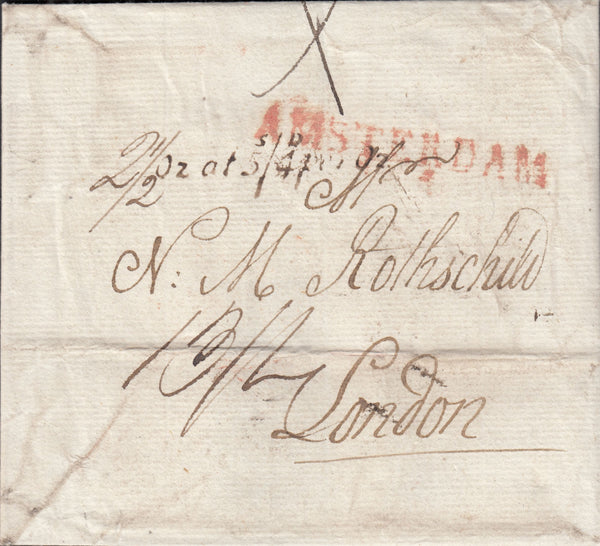 X
AMSTERDAM
2 1/2 oz at 5/4 per oz
Mr
N: M Rothschild
13/4
London